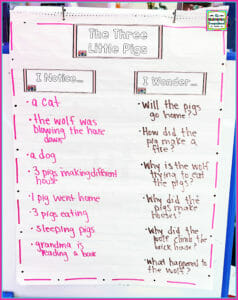 The Three
Little Pigs
I Notice...
• a cat
• the wolf was
blowing the house
down
• a dog
• 3 pigs making different
house
• 1 pig went home
• 3 pigs eating
• sleeping pigs
• grandma is
reading a book
I Wonder...
• Will the pigs
go home?
• How did the
pig make a
fire?
• Why is the wolf
trying to eat
the pigs?
• Why did the
pigs make
houses?
• Why did the
wolf climb the
brick house?
• What happened to
the wolf?